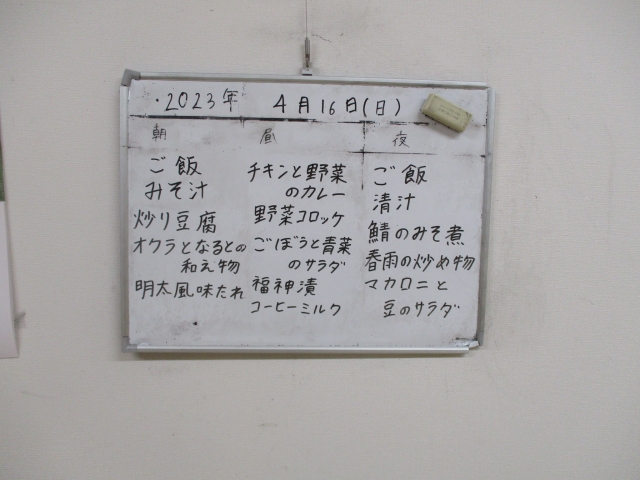 ・2023年 4月16日(日)
朝
ご飯
みそ汁
炒り豆腐
オクラとなるとの
和え物
明太風味たれ
昼
チキンと野菜
のカレー
野菜コロッケ
ごぼうと青菜
のサラダ
福神漬
コーヒーミルク
夜
ご飯
清汁
鯖のみそ煮
春雨の炒め物
マカロニと
豆のサラダ